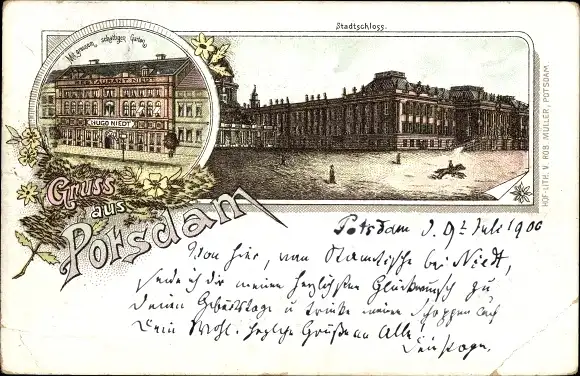 Stadtschloss.
Mit grossem, schattigen Garten
RESTAURANT NIEDT
HUGO NIEDT
Gruss
aus
Potsdam
HOF-LITH. V. ROB. MÜLLER, POTSDAM.
Potsdam d. 9t Juli 1900
Von hier, vom Stamtische bei Niedt,
sende ich dir meinen herzlichsten Glückwunsch zu
deinem Geburtstage u trinke meinen Schoppen auf
Dein Wohl. herzliche Grüße an Alle
Dein